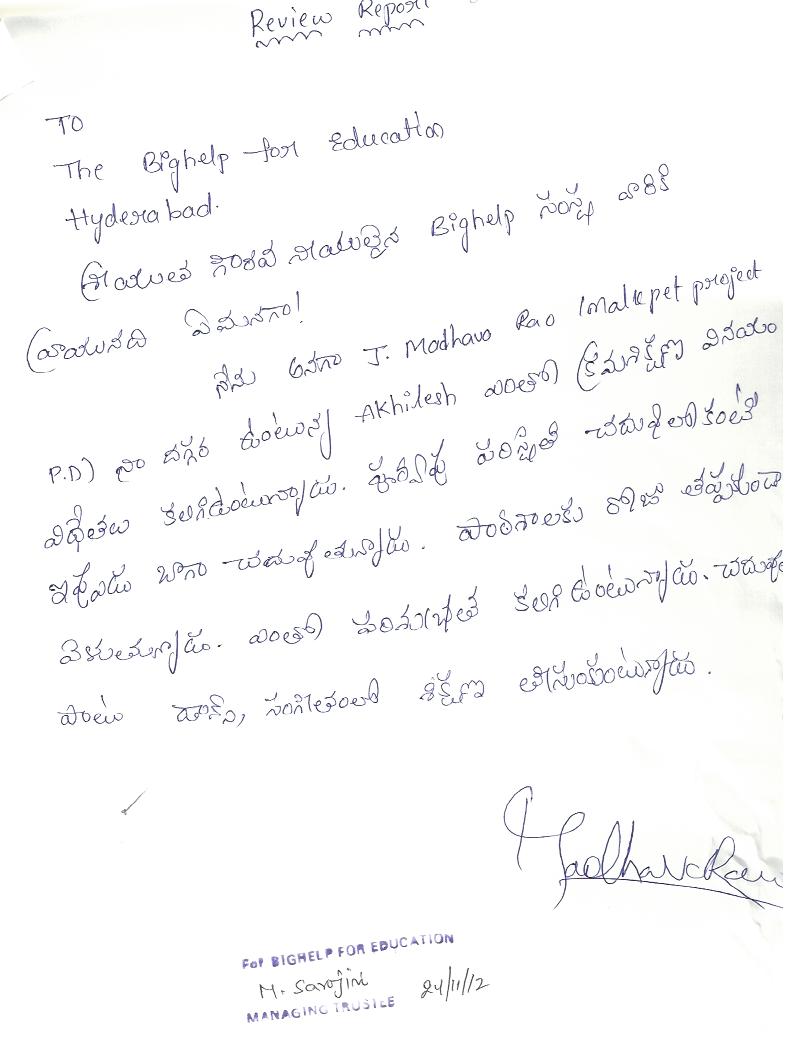 Review Report
TO
The Bighelp for Education
Hyderabad.
శ్రీయుత గౌరవ నీయులైన Bighelp సంస్థ వారికి
వ్రాయునది ఏమనగా!
నేను అనగా J. Madhava Rao (malkpet project
P.D) నా దగ్గర ఉంటున్న Akhilesh ఎంతో క్రమశిక్షణ వినయం
విధేతలు కలిగిఉంటున్నాడు. పరిస్థితి చదువులో కంటే
ఇప్పుడు బాగా చదువు తున్నాడు. పాఠశాలకు రోజు తప్పకుండా
వెళుతున్నాడు. ఎంతో పరిశుభ్రత కలిగి ఉంటున్నాడు. చదువుతో
పాటు డాన్స్, సంగీతంలో శిక్షణ తీసుకుంటున్నాడు.
Madhava Rao
For BIGHELP FOR EDUCATION
M. Sarojini 24/11/12
MANAGING TRUSTEE